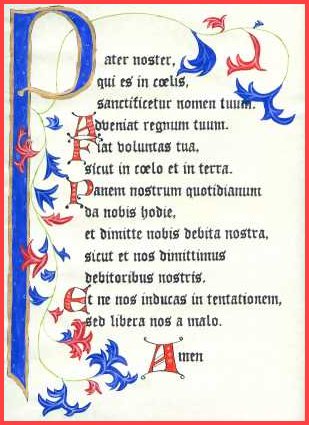 Pater noster,
qui es in cœlis,
sanctificetur nomen tuum.
Adveniat regnum tuum.
Fiat voluntas tua,
sicut in cœlo et in terra.
Panem nostrum quotidianum
da nobis hodie,
et dimitte nobis debita nostra,
sicut et nos dimittimus
debitoribus nostris.
Et ne nos inducas in tentationem,
sed libera nos a malo.
Amen